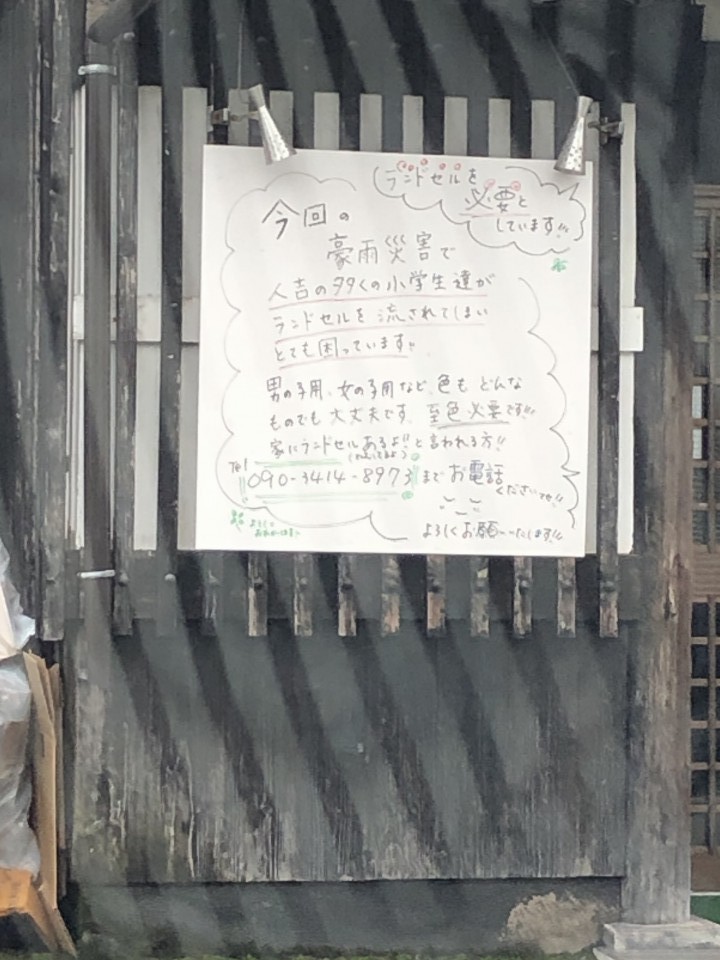 ランドセルを
必要と
しています!!
今回の
豪雨災害で
人吉の多くの小学生達が
ランドセルを流されてしまい
とても困っています!!
男の子用、女の子用など、色も どんな
ものでも 大丈夫です。至急 必要です!!!
家にランドセルあるよ!!と言われる方!!
Tel 090-3414-8973 まで お電話
くださいませ!!
よろしく
よろしくお願いいたします!!